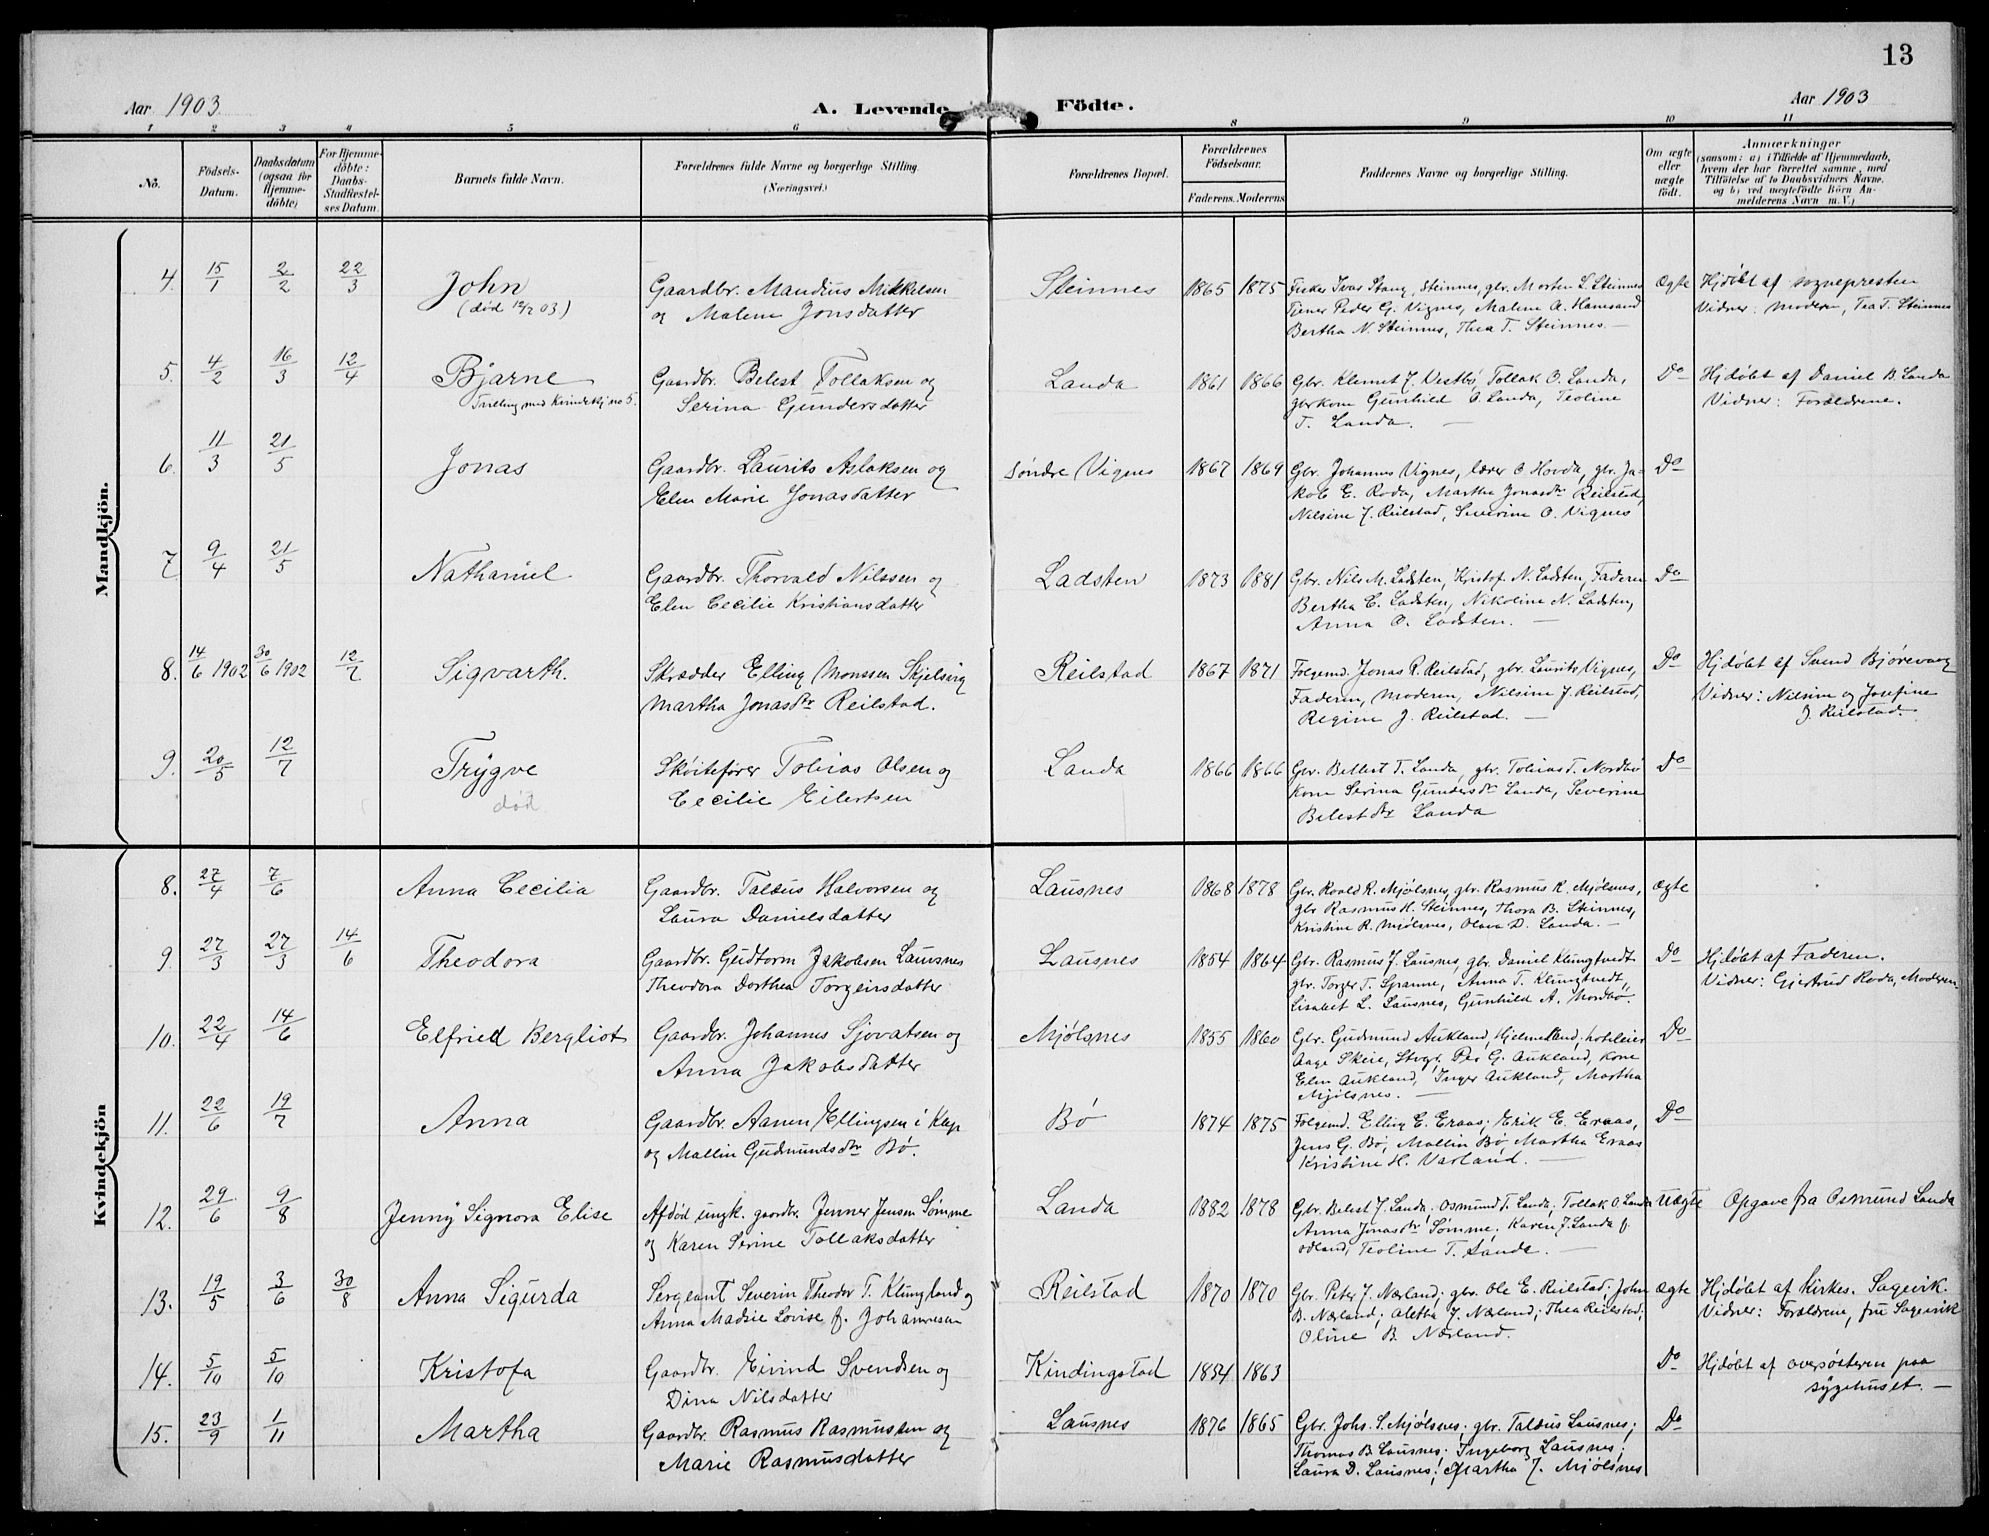 13
Aar 1903
A. Levende Födte.
Aar 1903
1 2 3 4 5 6 8 9 10 11
No.
Födsels-Datum.
Daabsdatum (ogsaa för Hjemme-döbte)
For Hjemme-döbte: Daabs-Stadfæstel-ses Datum.
Barnets fulde Navn.
Forældrenes fulde Navne og borgerlige Stilling.
(Næringsvei.)
Forældrenes Bopæl.
Forældrenes Födselsaar.
Faderens. Moderens.
Faddernes Navne og borgerlige Stilling.
Om ægte eller uægte födt.
Anmærkninger
(saasom: a) i Tilfælde af Hjemmedaab, hvem der har forrettet samme, med Tilföielse af to Daabsvidners Navne, og b) ved uægtefödte Börn An-melderens Navn m. V.)
Mandkjön.
4. 15/1 2/2 22/3 John Gaardbr. Mandius Mikkelsen Steinnes 1865 1875 Fisker Ivar Stang, Steinnes, gbr. Morten L. Steinnes Ægte Hjdøbt af sognepresten
(död 12/7 03) og Malene Jonsdatter Tjener Peder G. Vignes, Malene A. Hamsand Vidner: Moderen, Tea T. Steinnes
Bertha N. Steinnes, Thea T. Steinnes. —
5. 4/2 16/3 12/4 Bjarne Gaardbr. Belest Tollaksen og Landa 1861 1866 Gbr. Klemet J. Vestbö, Tollak O. Landa, Do Hjdøbt af Daniel B. Landa
Trilling med Kvindekj no 5. Serina Gundersdatter gbrkone Gunhild O. Landa, Teoline Vidner: Forældrene.
T. Landa. —
6. 11/3 21/5 Jonas Gaardbr. Laurits Aslaksen og Söndre Vignes 1867 1869 Gbr. Johannes Vignes, lærer O Hovda, gbr. Ja- Do
Elen Marie Jonasdatter kob E. Roda, Martha Jonasdtr Reilstad,
Nilsine J. Reilstad, Severine O. Vignes
7 9/4 21/5 Nathaniel Gaardbr. Thorvald Nilssen og Ladsten 1873 1881 Gbr. Nils M. Ladsten, Kristof. N. Ladsten, Faderen Do
Elen Cecilie Kristiansdatter Bertha C. Ladsten, Nikoline N. Ladsten,
Anna O. Ladsten. —
8. 14/6 1902 30/6 1902 12/7 Sigvarth. Skrædder Elling Monssen Skjelsvig Reilstad 1867 1871 Folgemd. Jonas R. Reilstad, gbr. Laurits Vignes, Do Hjdøbt af Svend Bjørevaag
Martha Jonasdtr Reilstad. Faderen, Moderen, Nilsine J. Reilstad, Vidner: Nilsine og Josefine
Regine J. Reilstad. — J. Reilstad.
9. 20/5 12/7 Trygve Skøitefører Tobias Olsen og Landa 1866 1866 Gbr. Bellest T. Landa, gbr. Tobias T. Nordbø Do
död Cecilie Eilertsen Kone Serina Gundersdtr Landa, Severine
Belestdtr Landa
Kvindekjön
8. 27/4 7/6 Anna Cecilia Gaardbr. Taldus Halvorsen og Lausnes 1868 1878 Gbr. Roald R. Mjølsnes, gbr. Rasmus R. Mjølsnes, ægte
Laura Danielsdatter gbr Rasmus H. Steinnes, Thora B. Steinnes,
Kristine R. Mjølsnes, Olava D. Landa. —
9. 27/3 27/3 14/6 Theodora Gaardbr. Gudtorm Jakobsen Lausnes Lausnes 1854 1864 Gbr. Rasmus J. Lausnes, gbr. Daniel Klungtvedt Do Hjdøbt af Faderen.
Theodora Dorthea Torgeirsdatter gbr. Torger T. Spanne, Anna T. Klungtvedt, Vidner: Gjertrud Roda, Moderen
Lisabet L. Lausnes, Gunhild A. Nordbö.
10. 22/4 14/6 Elfried Bergliot Gaardbr. Johannes Sjovatsen og Mjølsnes 1855 1860 Gbr. Gudmund Aukland, Hjelmeland, hoteleier Do
Anna Jakobsdatter Aage Skeie, Stvgr. Per G. Aukland, kone
Elen Aukland, Inger Aukland, Martha
Mjølsnes. —
11. 22/6 19/7 Anna Gaardbr. Aanen Ellingsen i Kap Bö 1874 1875 Folgemd. Elling E. Eraas; Erik E. Eraas, Do
og Mallin Gudmundsdtr Bö. Jens G. Bö, Mallin Bö, Martha Eraas
Kristine H. Varland. —
12. 29/6 9/8 Jenny Signora Elise Afdød ungk. gaardbr. Jenner Jensen Sømme Landa 1882 1878 Gbr. Belest J. Landa, Osmund T. Landa, Tollak O. Landa Uægte Opgave fra Osmund Landa
og Karen Serine Tollaksdatter Anna Jonasdtr Sømme, Karen J. Landa f.
Odland, Teoline T. Landa. —
13. 19/5 3/6 30/8 Anna Sigurda Sergeant Severin Theodor T. Klungland og Reilstad 1870 1870 Gbr. Peter J. Nærland; gbr. Ole E. Reilstad; John ægte Hjdøbt af Kirkes. Sagevik.
Anna Madsie Lovise f. Johannesen B. Nærland; Aletha J. Nærland; Thea Reilstad; Vidner: Forældrene, fru Sagevik
Oline B. Nærland.
14. 5/10 5/10 Kristofa Gaardbr. Eivind Svendsen og Kindingstad 1854 1863 Do Hjdøbt af oversøsteren paa
Dina Nilsdatter sygehuset. —
15. 23/9 1/11 Martha Gaardbr. Rasmus Rasmussen og Lausnes 1876 1865 Gbr. Johs. S. Mjølsnes; gbr. Taldus Lausnes; Do
Marie Rasmusdatter Thomas B. Lausnes; Ingeborg Lausnes;
Laura D. Lausnes; Martha J. Mjølsnes